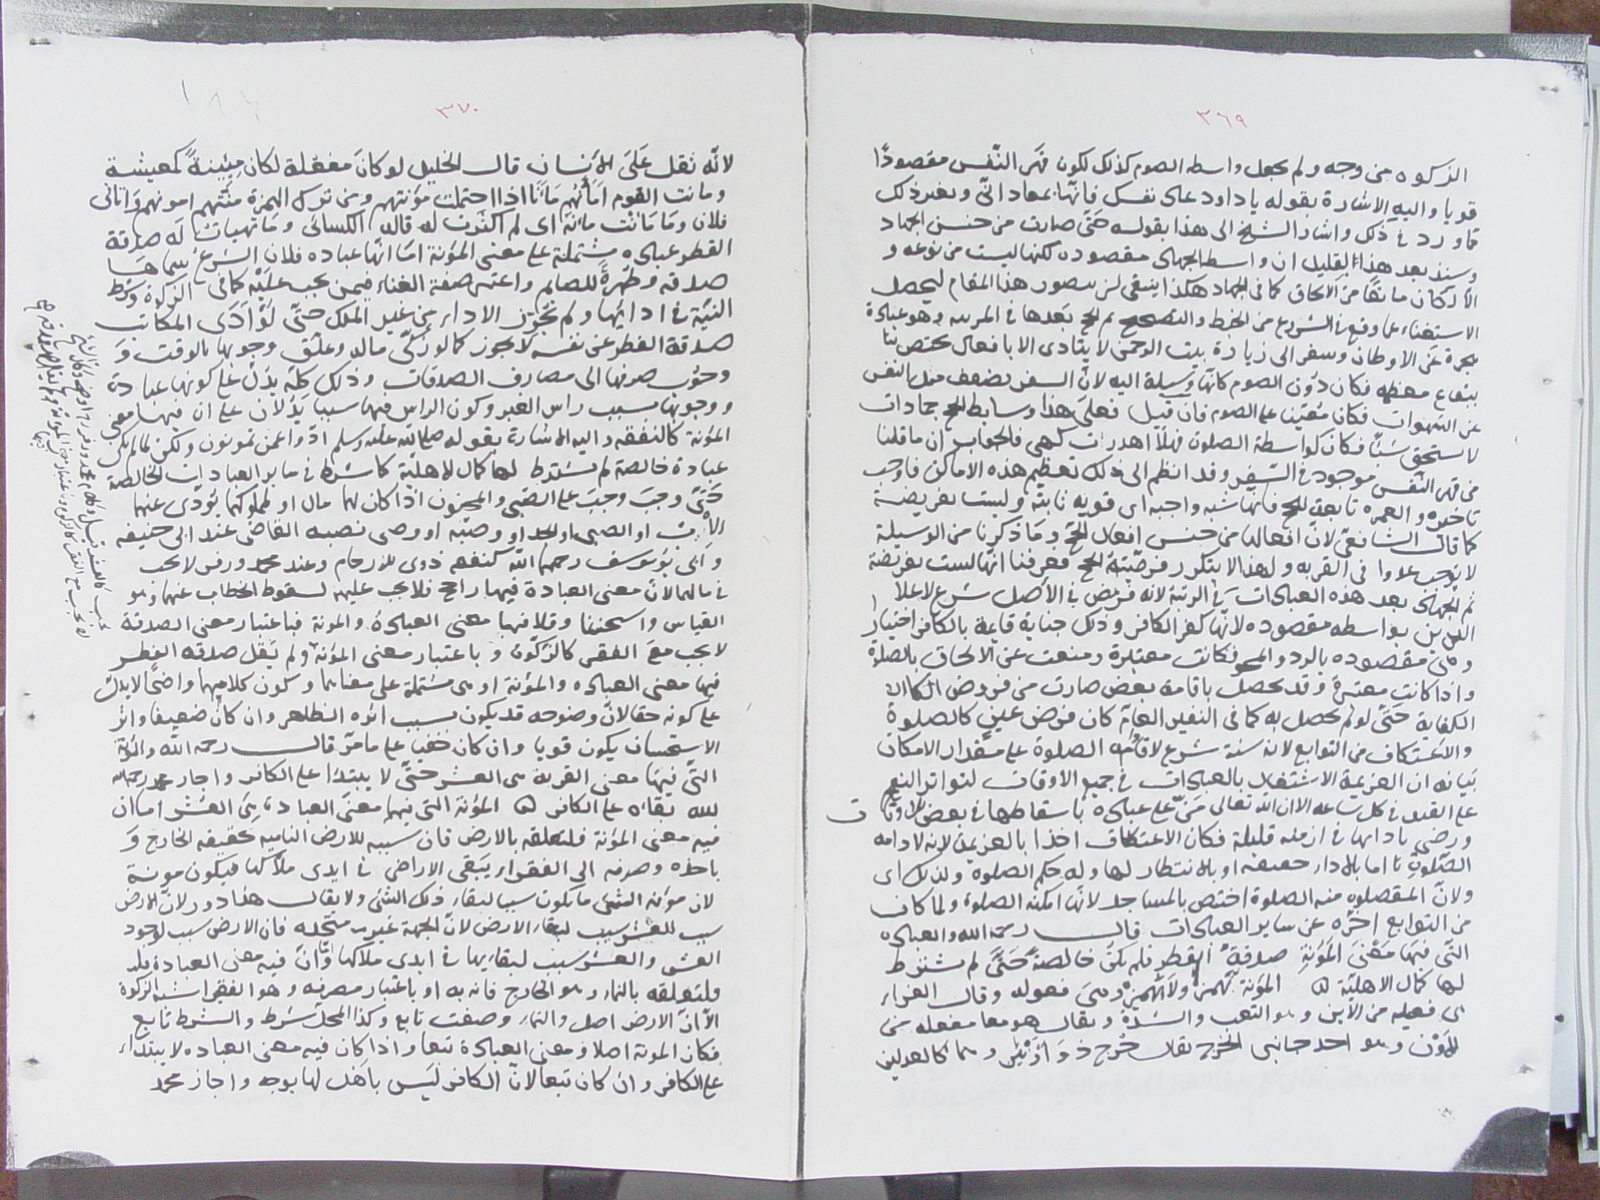 ٣٦٩
الزكوة من وجه ولم يجعل واسطة الصوم كذلك لكون قهر النفس مقصودًا
قويا واليه الاشارة بقوله يا داود عاد نفسك فانها بمعاداتي وبغير ذلك
مما ورد في ذلك واشار الشيخ الى هذا بقوله حتى صارت من جنس الجهاد
وسنذ بعد هذا بقليل ان واسطة الجهاد مقصودة لكنها ليست من نوعه و
الاركان مانعا من الالحاق كما في الجهاد هكذا ينبغي ان يتصور هذا المقام ليحصل
الاستغناء عما وقع في الشروح من الخبط والتصحيح ثم الحج بعدها في المرتبة وهو عبادة
هجرة عن الاوطان وسفر الى زيارة بيت الرحمن لا يتادى الا بافعال يختص بها
ببقاع معظمة فكان دون الصوم كانها وسيلة اليه لان السفر يضعف النفس
عن الشهوات فكان معينا على الصوم فان قيل فعلى هذا وسايط الحج جمادات
لا يستحق شيئا فكان كواسطة الصلوة فهلا اهدرت كهي فالجواب ان ما قلنا
من قهر النفس موجود في السفر وقد انظم الى ذلك تعظيم هذه الاماكن فاوجب
تاخيره والعمرة تابعة للحج فانها سنة واجبة اي قوية ثابتة وليست بفريضة
كما قال الشافعي لان افعالها من جنس افعال الحج وما ذكرنا من الوسيلة
لا يوجب علوا في القربة ولهذا لا يتكرر فرضية الحج فعرفنا انها ليست بفريضة
ثم الجهاد بعد هذه العبادات في الرتبة لانه فرض في الاصل شرع لاعلاء
الدين بواسطة مقصودة لانها كفر الكافر وذلك جناية قايمة بالكافر باختيار
وهي مقصودة بالرد والمحو فكانت معتبرة ومنعت عن الالحاق بالصلوة
واذا كانت معتبرة وقد يحصل باقامة بعض صارت من فروض
الكفاية حتى لو لم يحصل به كما في النفير العام كان فرض عين كالصلوة
والاعتكاف من التوابع لانه سنة شرع لاقامة الصلوة على مقدار الامكان
بيانه ان العزيمة الاشتغال بالعبادات في جميع الاوقات لتواتر النعم
على العبد في كل ساعة الا ان الله تعالى من على عباده باسقاطها في بعض الاوقات
ورضي بادائها في ازمنة قليلة فكان الاعتكاف اخذا بالعزيمة لانه لادامة
الصلوة اما بالاداء حقيقة او بالانتظار لها وله حكم الصلوة ولذلك اي
ولان المقصود منه الصلوة اختص بالمساجد لانها امكنة الصلوة ولما كان
من التوابع اخره عن ساير العبادات قال رحمه الله والعبادة
التي فيها معنى المؤنة صدقة الفطر فلم يكن خالصة حتى لم يشترط
لها كمال الاهلية المؤنة تهمز ولا تهمز وهي فعولة وقال الفراء
هي فعيلة من الاين وهو التعب والشدة ويقال هو مفعلة من
الاون وهو احد جانبي الخرج يقال خرج ذو اونين وهما كالعدلين
٣٧٠
لانه ثقل على الانسان قال الخليل لو كان مفعلة لكان مئينة كمعيشة
ومانت القوم امأنهم مأنا اذا احتملت مؤنتهم ومن ترك الهمزة منتهم امونهم واتاني
فلان وما مأنت مأنه اي لم اكترث له قاله الكسائي وما تهيأت له صدقة
الفطر عبادة مشتملة على معنى المؤنة اما انها عبادة فلان الشرع سماها
صدقة وطهرة للصايم واعتبر صفة الغناء فيمن يجب عليه كما في الزكوة وشرط
النية في ادائها ولم تجوز الاداء من غير الملك حتى لو ادى المكاتب
صدقة الفطر عن نفسه لا يجوز كما لو زكى ماله وعلق وجوبها بالوقت و
وجوب صرفها الى مصارف الصدقات وذلك كله يدل على كونها عبادة
ووجوبها بسبب راس الغير وكون الراس فيها سببا يدلان على ان فيها معنى
المؤنة كالنفقة واليه الاشارة بقوله صلى الله عليه وسلم ادوا عمن تمونون ولكن لما لم يكن
عبادة خالصة لم يشترط لها كمال الاهلية كما شرط في ساير العبادات الخالصة
حتى وجب وجب على الصبي والمجنون اذا كان لهما مال او مملوكهما يؤدي عنهما
الاب او الصبي او الجد او وصيه او وصي نصبه القاضي عند ابي حنيفة
وابي يوسف رحمهما الله كنفقة ذوي الارحام وعند محمد وزفر لا يجب
في مالهما لان معنى العبادة فيها راجح فلا يجب عليهما لسقوط الخطاب عنهما وهو
القياس واستحسنا وقلا فيها معنى العبادة والمونة فباعتبار معنى الصدقة
لا يجب مع الفقر كالزكوة وباعتبار معنى المؤنة ولم يقل صدقة الفطر
فيها معنى العبادة والمؤنة او هي مشتملة على معناهما وكون كلاميهما واضح لا يدل
على كونه حقا لان وضوحه قد يكون بسبب اثره الظاهر وان كان ضعيفا واثر
الاستحسان يكون قويا وان كان خفيا على ما مر قال رحمه الله والمؤنة
التي فيها معنى القربة هي العشر حتى لا يبتدا على الكافر واجاز محمد رحمه
الله بقاه على الكافر المؤنة التي فيها معنى العبادة هي العشر اما ان
فيه معنى المؤنة فلتعلقه بالارض فان سببه الارض النامية بحقيقة الخارج و
باخذه وصرفه الى الفقراء يبقى الاراضي في ايدي ملاكها فيكون مونة
لان مؤنة الشئ ما يكون سببا لبقاء ذلك الشئ ولا يقال هذا دور لان الارض
سبب للعشر سبب لبقاء الارض لان الجهة غير متحدة فان الارض سبب لوجود
العشر والعشر سبب لبقائها في ايدي ملاكها وان فيه معنى العبادة فلد
فلتعلقه بالنماء وهو الخارج فانه به او باعتبار مصرفه وهو الفقر اشبه الزكوة
الا ان الارض اصل والنماء وصفت تابع وكذا المحل شرط والشرط تابع
فكان المونة اصلا ومعنى العبادة تبعا واذا كان فيه معنى العبادة لا يبتداء
على الكافر وان كان تبعا لان الكافر ليس باهل لها بوجه واجاز محمد